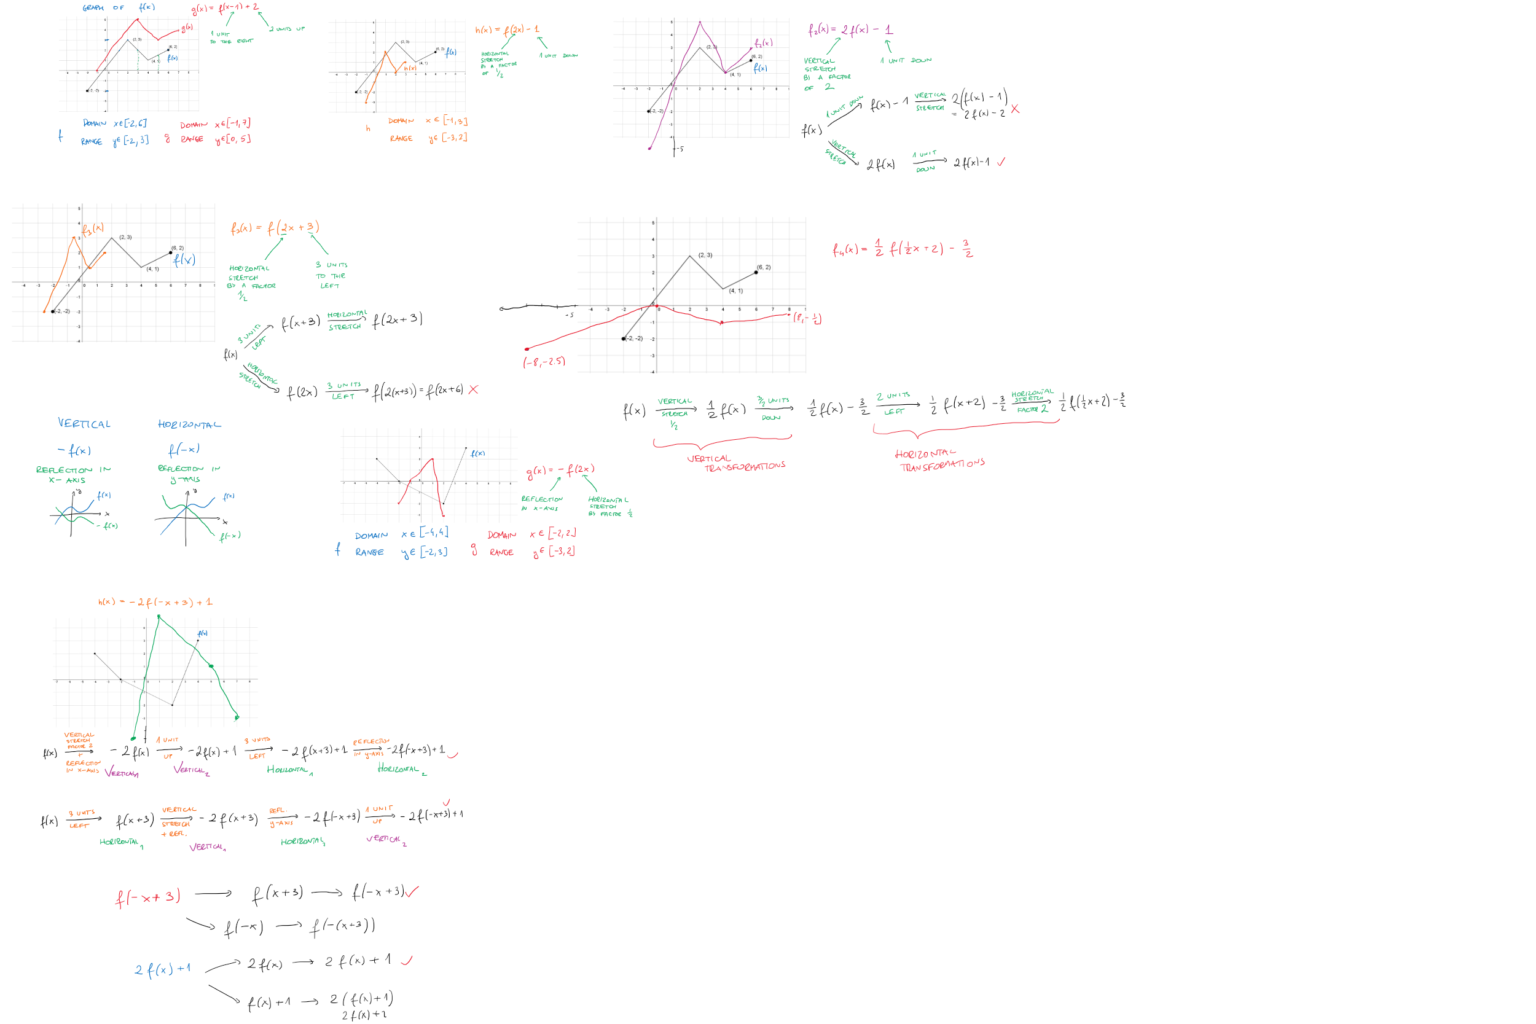 GRAPH OF f(x)
g(x) = f(x-1) + 2
1 UNIT TO THE RIGHT
2 UNITS UP
g(x)
(2, 3)
(6, 2)
f(x)
(4, 1)
(-2, -2)
f DOMAIN x∈[-2,6]
RANGE y∈[-2,3]
g DOMAIN x∈[-1,7]
RANGE y∈[0,5]
h(x) = f(2x) - 1
HORIZONTAL
STRETCH
BY A FACTOR
OF 1/2
1 UNIT DOWN
(2, 3)
(6, 2)
f(x)
(4, 1)
h(x)
(-2, -2)
h DOMAIN x∈[-1,3]
RANGE y∈[-3,2]
f₂(x) = 2f(x) - 1
VERTICAL
STRETCH
BY A FACTOR
OF 2
1 UNIT DOWN
f₂(x)
(2, 3)
(6, 2)
f(x)
(4, 1)
(-2, -2)
-5
f(x)
1 UNIT DOWN
f(x) - 1
VERTICAL
STRETCH
2(f(x) - 1)
= 2f(x) - 2 ✗
VERTICAL
STRETCH
2f(x)
1 UNIT
DOWN
2f(x)-1 ✓
f₃(x)
(2, 3)
(6, 2)
f(x)
(4, 1)
(-2, -2)
f₃(x) = f(2x + 3)
HORIZONTAL
STRETCH
BY A FACTOR
1/2
3 UNITS
TO THE
LEFT
f(x)
3 UNITS
LEFT
f(x+3)
HORIZONTAL
STRETCH
f(2x+3)
HORIZONTAL
STRETCH
f(2x)
3 UNITS
LEFT
f(2(x+3)) = f(2x+6) ✗
f₄(x) = 1/2 f(1/2x+2) - 3/2
(2, 3)
(6, 2)
(4, 1)
(-2, -2)
-5
(8, -1/2)
(-8, -2.5)
f(x)
VERTICAL
STRETCH
1/2
1/2 f(x)
3/2 UNITS
DOWN
1/2 f(x) - 3/2
2 UNITS
LEFT
1/2 f(x+2) - 3/2
HORIZONTAL
STRETCH
FACTOR 2
1/2 f(1/2x+2) - 3/2
VERTICAL
TRANSFORMATIONS
HORIZONTAL
TRANSFORMATIONS
VERTICAL
- f(x)
REFLECTION IN
X-AXIS
f(x)
-f(x)
HORIZONTAL
f(-x)
REFLECTION IN
y-AXIS
f(x)
f(-x)
f(x)
g(x) = - f(2x)
REFLECTION
IN X-AXIS
HORIZONTAL
STRETCH
BY FACTOR 1/2
f DOMAIN x∈[-4,4]
RANGE y∈[-2,3]
g DOMAIN x∈[-2,2]
RANGE y∈[-3,2]
h(x) = -2f(-x+3)+1
f(x)
f(x)
VERTICAL
STRETCH
FACTOR 2
+
REFLECTION
IN X-AXIS
-2f(x)
1 UNIT
UP
-2f(x)+1
3 UNITS
LEFT
-2f(x+3)+1
REFLECTION
IN y-AXIS
-2f(-x+3)+1 ✓
VERTICAL₁
VERTICAL₂
HORIZONTAL₁
HORIZONTAL₂
f(x)
3 UNITS
LEFT
f(x+3)
VERTICAL
STRETCH
+ REFL.
-2f(x+3)
REFL.
y-AXIS
-2f(-x+3)
1 UNIT
UP
-2f(-x+3)+1 ✓
HORIZONTAL₁
VERTICAL₁
HORIZONTAL₂
VERTICAL₂
f(-x+3) → f(x+3) → f(-x+3) ✓
f(-x) → f(-(x+3))
2f(x)+1
2f(x) → 2f(x)+1 ✓
f(x)+1 → 2(f(x)+1)
2f(x)+2